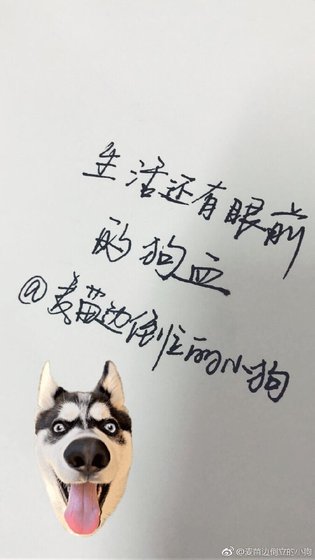 生活还有眼前
的狗血
@麦苗边倒立的小狗
@麦苗边倒立的小狗